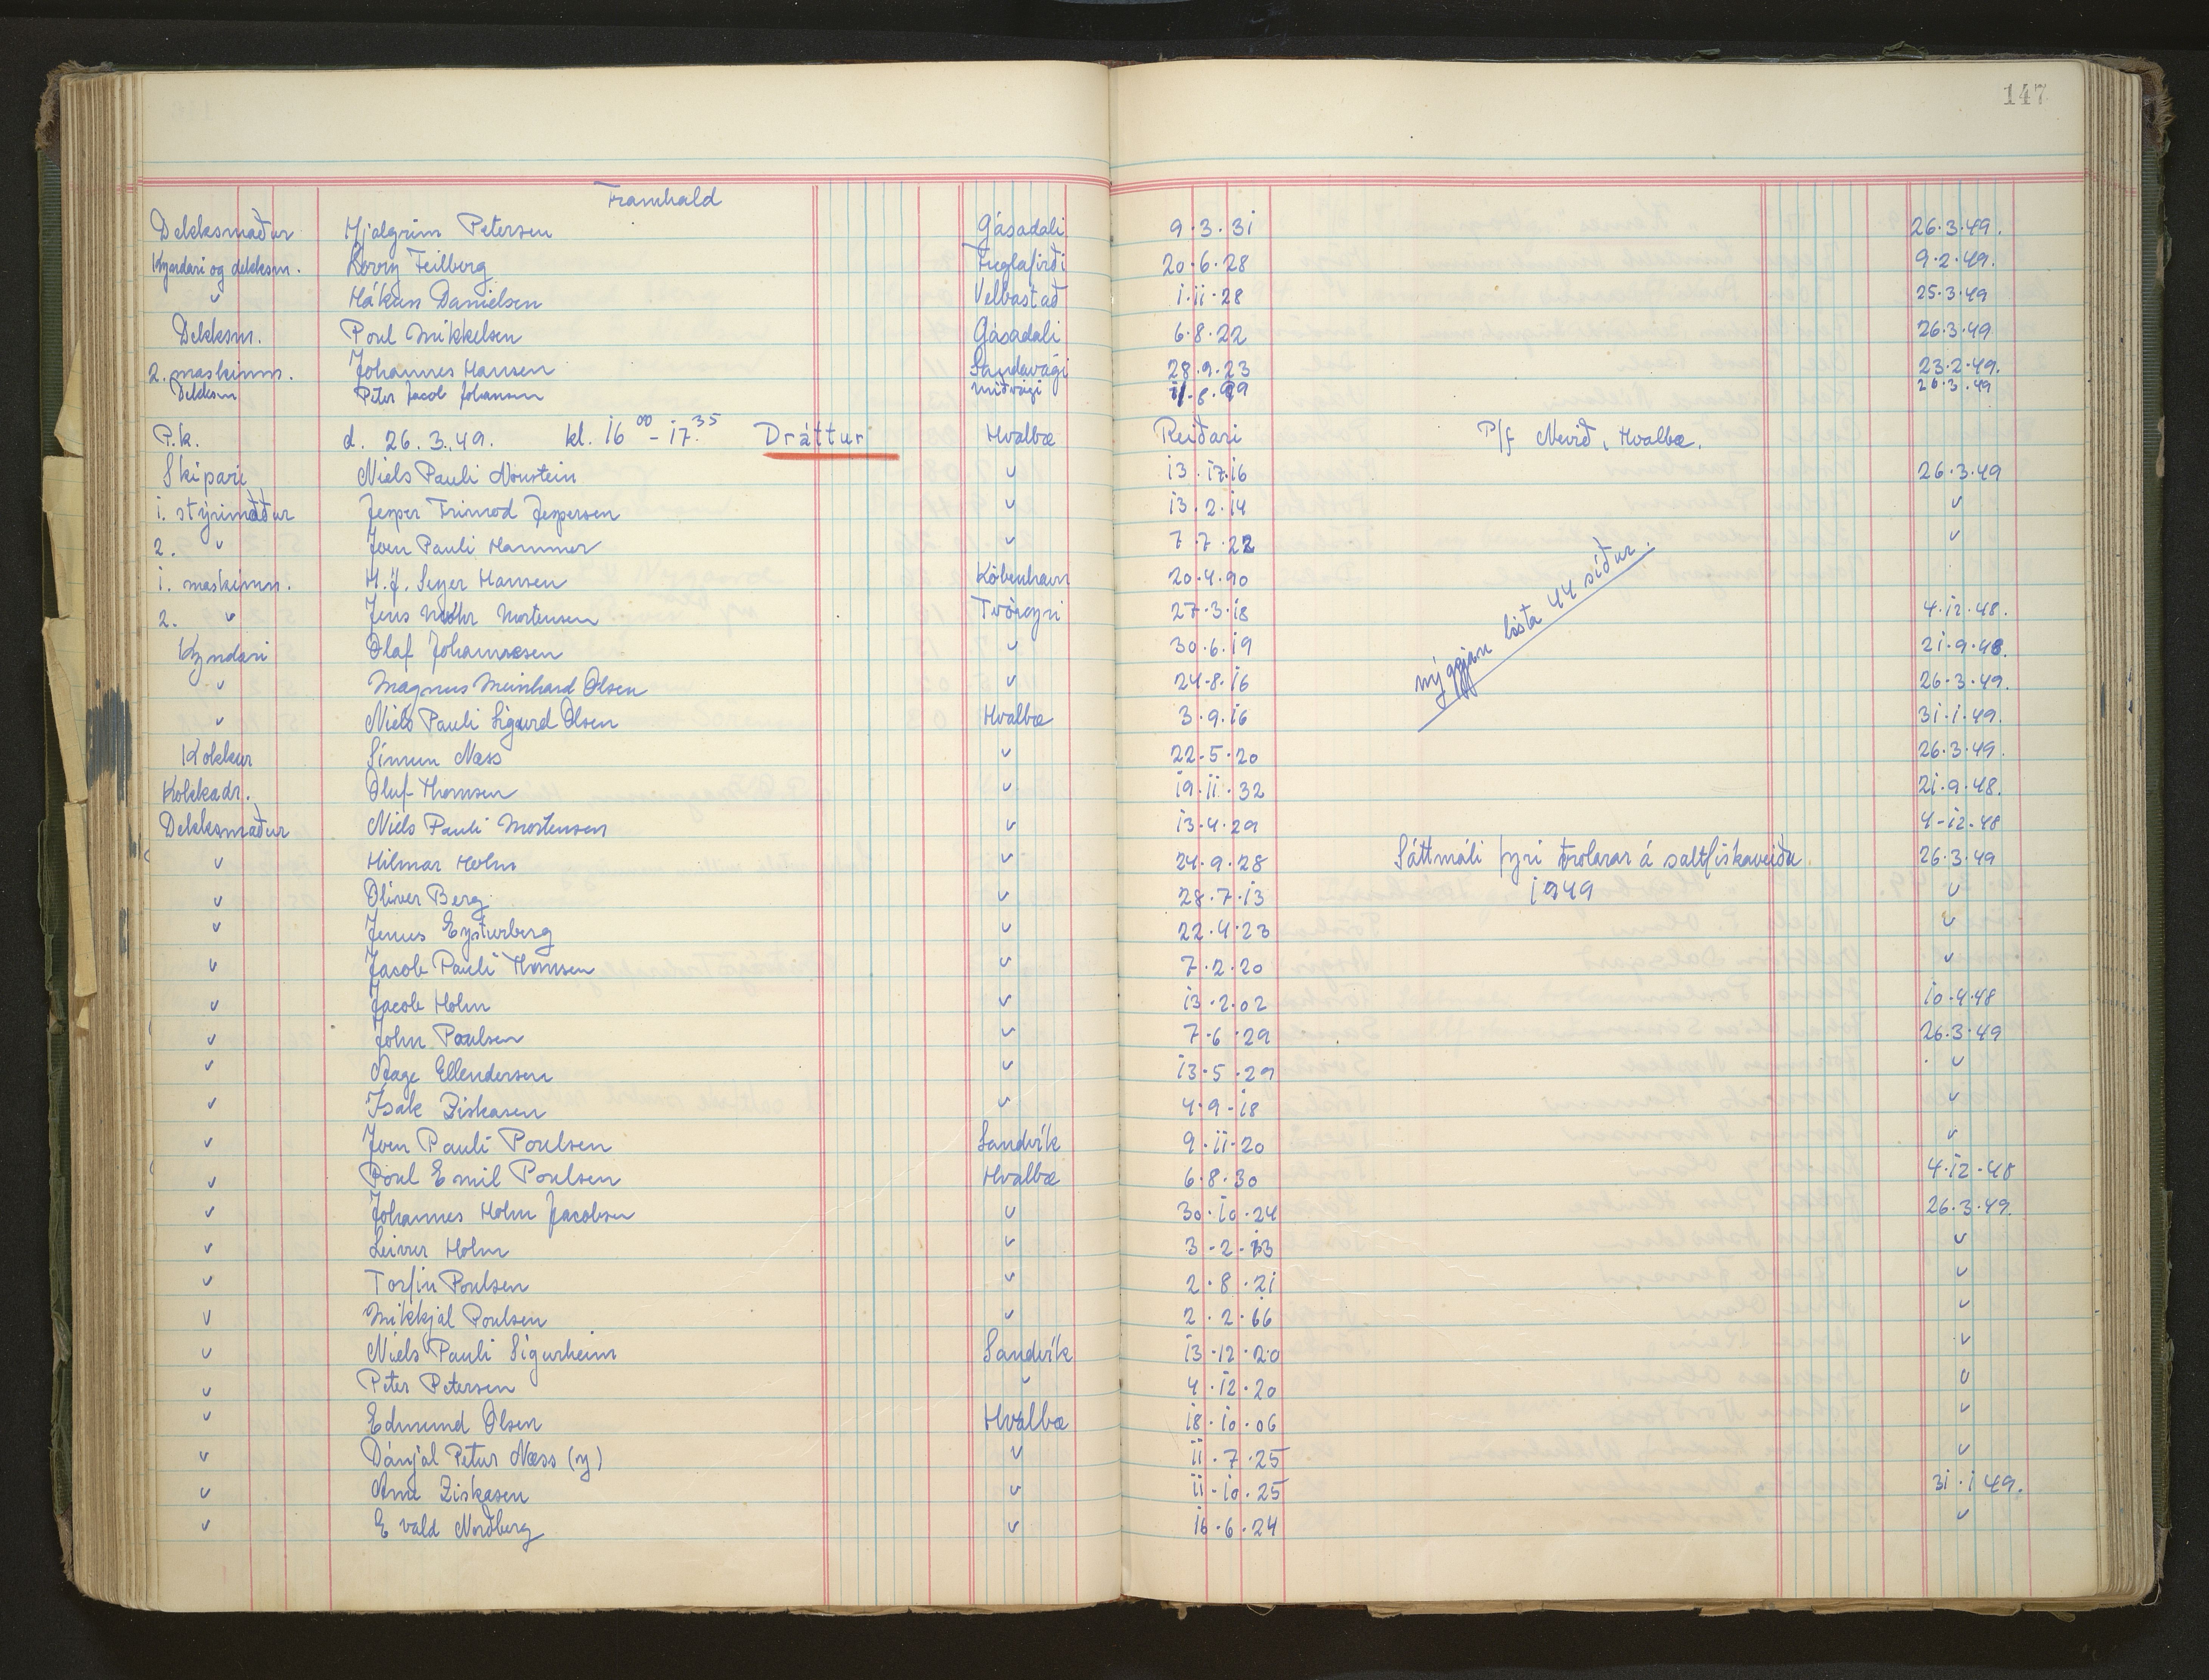 147
Framhald
Dekksmaður Hjalgrim Petersen Gásadali 9.3.31 26.3.49.
Kyndari og dekksm. Rørry Feilberg Fuglafirði 20.6.28 9.2.49.
〃 Hákun Danielsen Velbastað 1.11.28 25.3.49
Dekksm. Poul Mikkelsen Gásadali 6.8.22 26.3.49
2. maskinm. Johannes Hansen Sandavági 28.9.23 23.2.49.
Dekksm Peter Jacob Johansen Miðvági 11.8.99 26.3.49
P.k. d. 26.3.49. kl. 16 00 - 17.35 Dráttur Hvalbæ Reiðari P/f Nevið, Hvalbæ.
Skipari Niels Pauli Norstein 〃 13.17.16 26.3.49
1. stýrimaður Jesper Trimod Jespersen 〃 13.2.14 〃
2. 〃 Joen Pauli Hammer 〃 7.7.22 〃
1. maskinm. H.J. Seyer Hansen København 20.4.90
nýggjan lista 44 síður.
2. 〃 Jens Mohr Mortensen Tvøroyri 27.3.18 4.12.48.
Kyndari Olaf Johannesen 〃 30.6.19 21.9.48.
〃 Magnus Meinhard Olsen 〃 24.8.16 26.3.49.
〃 Niels Pauli Sigurd Olsen Hvalbæ 3.9.16 31.1.49.
Kokkur Símun Næss 〃 22.5.20 26.3.49.
Kokkadr. Oluf Thomsen 〃 19.11.32 21.9.48.
Dekksmaður Niels Pauli Mortensen 〃 13.4.29 4-12-48
〃 Hilmar Holm 〃 24.9.28 Sáttmáli fyri trolarar á saltfiskaveiðu 26.3.49
〃 Oliver Berg 〃 28.7.13 1949 〃
〃 Jenus Eysturberg 〃 22.4.23 〃
〃 Jacob Pauli Thomsen 〃 7.2.20 〃
〃 Jacob Holm 〃 13.2.02 10.4.48
〃 John Poulsen 〃 7.6.29 26.3.49
〃 Aage Ellendersen 〃 13.5.29 〃
〃 Ísak Ziskasen 〃 4.9-18 〃
〃 Joen Pauli Poulsen Sandvík 9.11.20 〃
〃 Poul Emil Poulsen Hvalbæ 6.8.30 4.12.48
〃 Johannes Holm Jacobsen 〃 30.10.24 26.3.49.
〃 Leivur Holm 〃 3-2-13 〃
〃 Torfin Poulsen 〃 2.8.21 〃
〃 Mikkjal Poulsen 〃 2.2.66 〃
〃 Niels Pauli Sigurheim Sandvík 13.12.20 〃
〃 Peter Petersen 〃 4.12.20 〃
〃 Edmund Olsen Hvalbæ 18.10.06 〃
〃 Dánjal Petur Næss (y) 〃 11.7.25 〃
〃 Arni Ziskasen 〃 11-10.25 31.1 49.
〃 Evald Norðberg 〃 16.6.24 〃